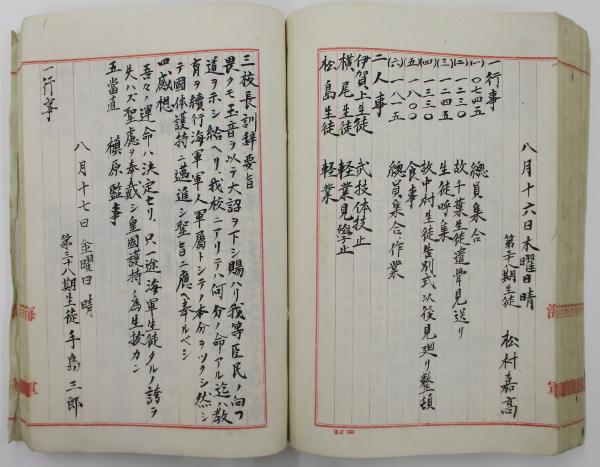 八月十六日木曜日晴
第三十八期生徒 松村嘉高
一行事
(一)〇七四五 總員集合
(二)一二三〇 故千葉生徒遺骨見送リ
(三)一二四五 生徒呼集
(四)一三三〇 故中村生徒告別式以後見廻リ整頓
(五)一八〇〇 食事
(六)一八一五 總員集合作業
二人事
伊賀上生徒 武技体技止
横尾生徒 軽業見學止
松島生徒 軽業
三校長訓辞要旨
畏クモ玉音ヲ以テ大詔ヲ下シ賜ハリ我等臣民ノ向フ
道ヲホシ給ヘリ、我校ニアリテハ何分ノ命アル迄ハ教
育ヲ續行海軍軍人軍属トシテノ本分ヲツクシ然シ
テ國体護持ニ邁進シ聖旨ニ應ヘ奉ルベシ
四感想
吾々ノ運命ハ決定セリ、只一途海軍生徒タルノ誇ヲ
失ハズ聖慮ヲ奉戴シ皇國護持ノ為生抜カン
五當直 槙原監事
八月十七日 金曜日 晴
第三十八期生徒 手島三郎
一行事
海軍
海軍